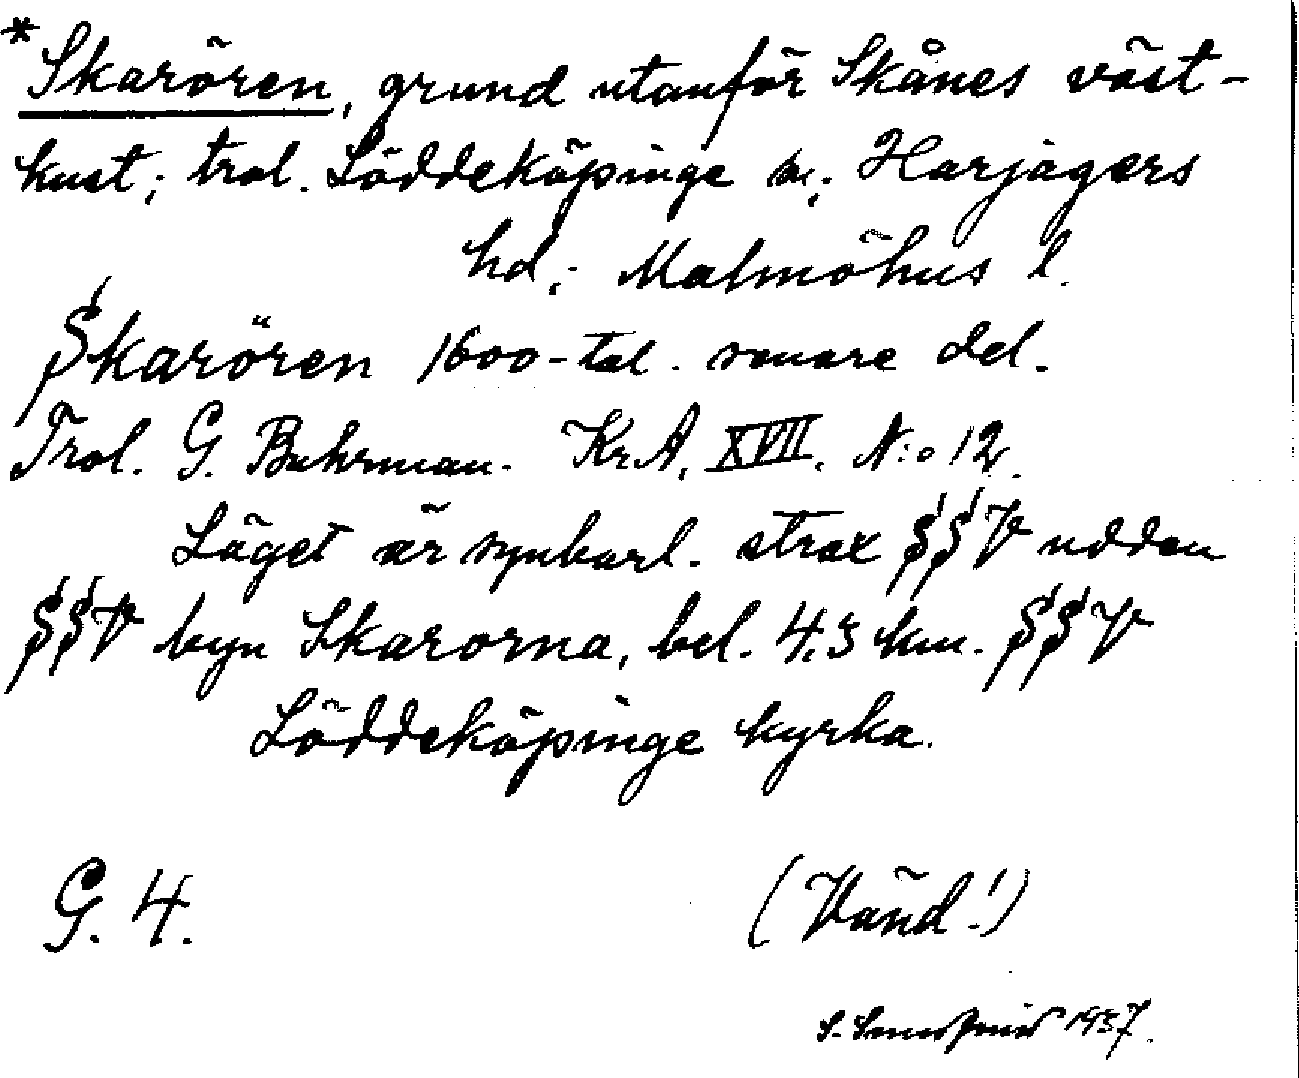 *Skarören, grund utanför Skånes väst-
kust; trol. Löddeköpinge sn; Harjagers
hd; Malmöhus l.
Skarören 1600-tal. senare del.
Trol. G. Buhrman. Kr.A. XVII. N:o 12.
Läget är synbarl. strax SSV udden
SSV byn Skarorna, bel. 4,5 km. SSV
Löddeköpinge kyrka.
G. 4.
(Vänd!)
S. 1937.